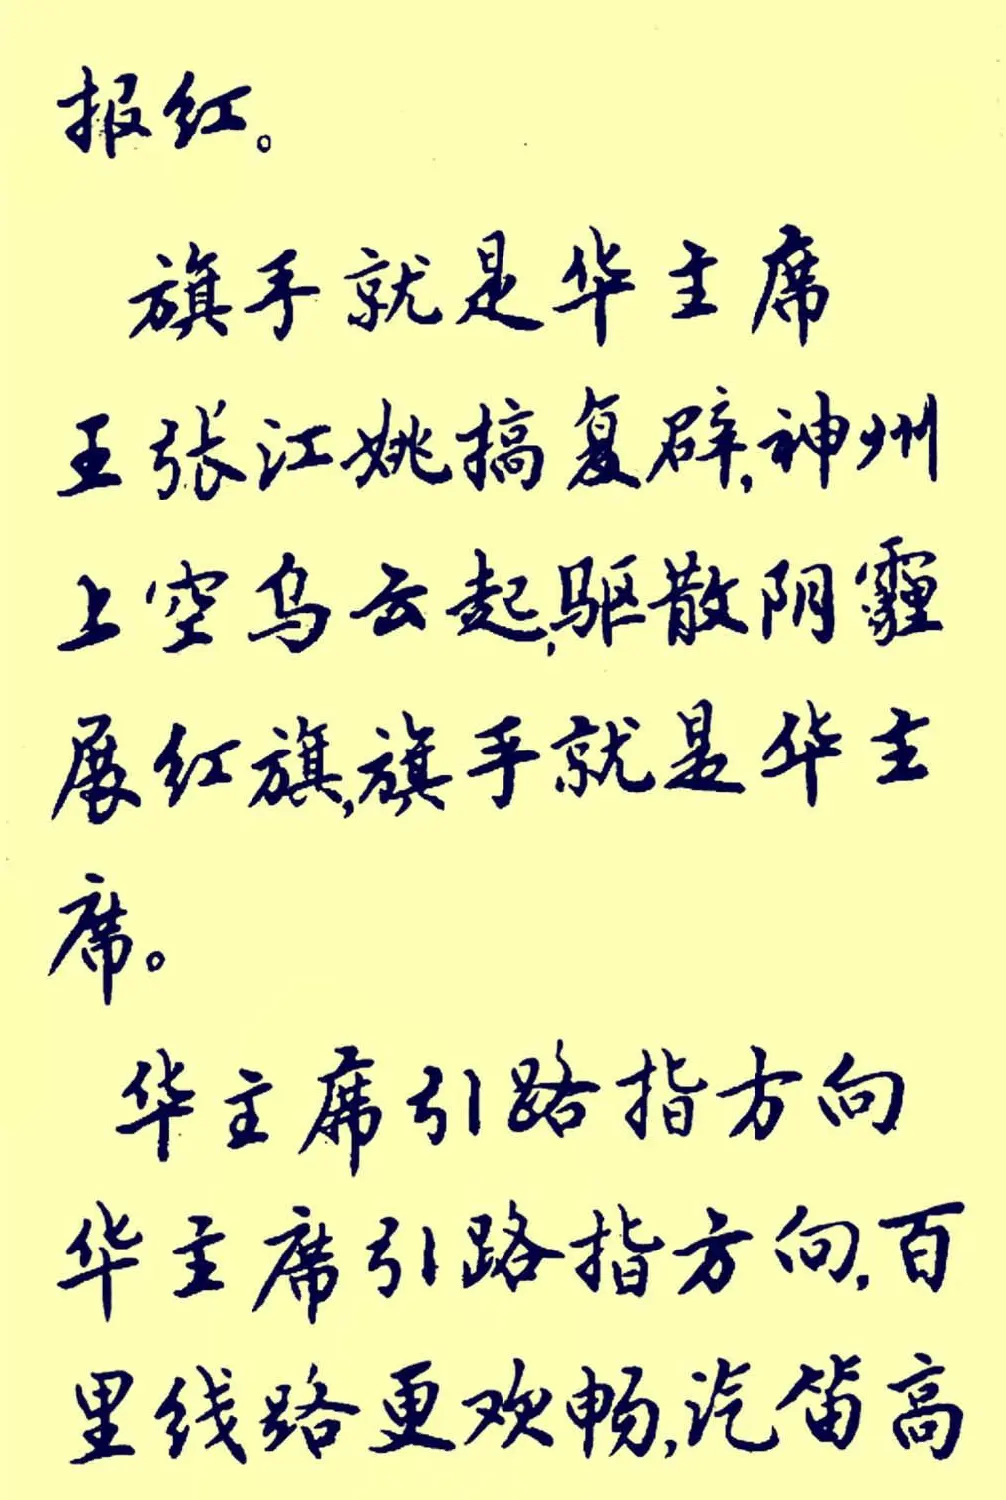 报红。
旗手就是华主席
王张江姚搞复辟,神州
上空乌云起,驱散阴霾
展红旗,旗手就是华主
席。
华主席引路指方向
华主席引路指方向,百
里线路更欢畅,汽笛高